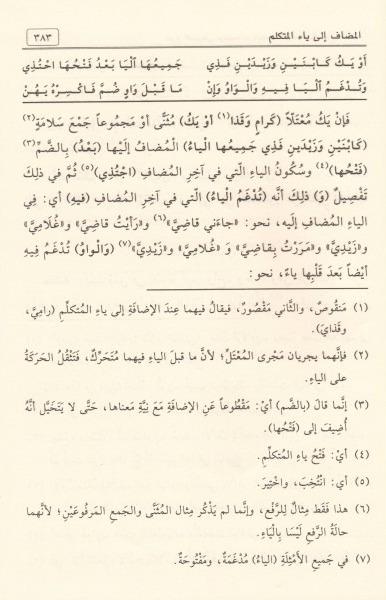 المضاف إلى ياء المتكلم
٣٨٣
أَوْ يَكُ كَابْنَيْنِ وَزَيْدِينَ فَذِي جَمِيعُهَا اليَا بَعْدُ فَتْحُهَا احْتُذِي
وَتُدْغَمُ اليَا فِيهِ وَالْوَاوُ وَإِنْ مَا قَبْلَ وَاوٍ ضُمَّ فَاكْسِرْهُ يَهُنْ
فَإِنْ يَكُ مُعْتَلّاً (كَرامٍ وَقَذا)(١) أَوْ يَكُ) مُثَنًّى أوْ مَجْموعاً جَمْعَ سَلامَةٍ(٢)
(كَابْنَيْنِ وَزَيْدِينَ فَذِي جَمِيعُهَا الياءُ) الْمُضافُ إلَيْها (بَعْدُ) بِالضَّمِّ(٣)
(فَتْحُها)(٤) وَسُكُونُ الياءِ الّتي في آخِرِ المُضافِ (احْتُذِي)(٥) ثُمَّ في ذلِكَ
تَفْصِيلٌ (وَ) ذلك أنَّه (تُدْغَمُ الْياءُ) الّتي في آخِرِ المُضافِ (فِيهِ) أي: في
الياءِ المُضافِ إلَيه، نحو: «جاءَني قاضِيَّ»(٦) و«رَأيْتُ قاضِيَّ» و«غُلامَيَّ»
و«زَيْدِيَّ» و«مَرَرْتُ بِقاضِيَّ» وَ «غُلامَيَّ» و«زَيْدِيَّ»(٧) (وَالواوُ) تُدْغَمُ فِيهِ
أيْضاً بَعدَ قَلْبِها ياءً، نحو:
(١) مَنقُوصٌ، والثّاني مَقْصُورٌ، فيقالُ فيهما عِندَ الإضافَةِ إلى ياءِ المُتكلِّمِ (رامِيَّ،
وَقَذايَ).
(٢) فإنَّهما يجريان مَجْرى المُعْتَلِّ؛ لأنَّ ما قبلَ الياءِ فيهما مُتَحَرِّكٌ، فَتَثْقُلُ الحَرَكَةُ
على الياءِ.
(٣) إنَّما قالَ (بالضَّم) أيْ: مَقْطُوعاً عَنِ الإضافَةِ مَعَ نِيَّةِ مَعناها، حَتّى لا يَتَخَيَّلَ أنَّهُ
أُضِيفَ إلى (فَتْحُها).
(٤) أيْ: فَتْحُ ياءِ المُتكلِّمِ.
(٥) أي: انْتُخِبَ، واخْتِيرَ.
(٦) هذا فَقَط مِثالٌ لِلرَّفْعِ، وإنَّما لم يَذْكُر مِثالَ المُثَنّى والجَمعِ المَرفُوعَيْنِ؛ لأنَّهما
حالَةُ الرَّفعِ لَيْسَا بِالْيَاءِ.
(٧) في جَميعِ الأمْثِلَةِ (الياءُ) مُدْغَمَةٌ، وَمَفْتُوحَةٌ.